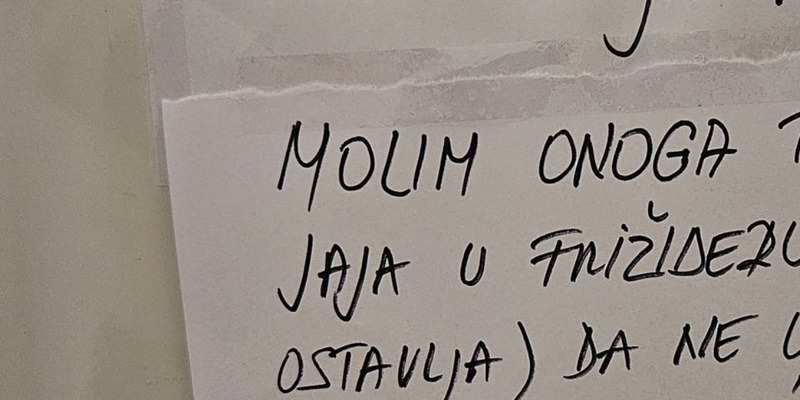 MOLIM ONOGA
JAJA U FRIŽIDERU
OSTAVLJA) DA NE